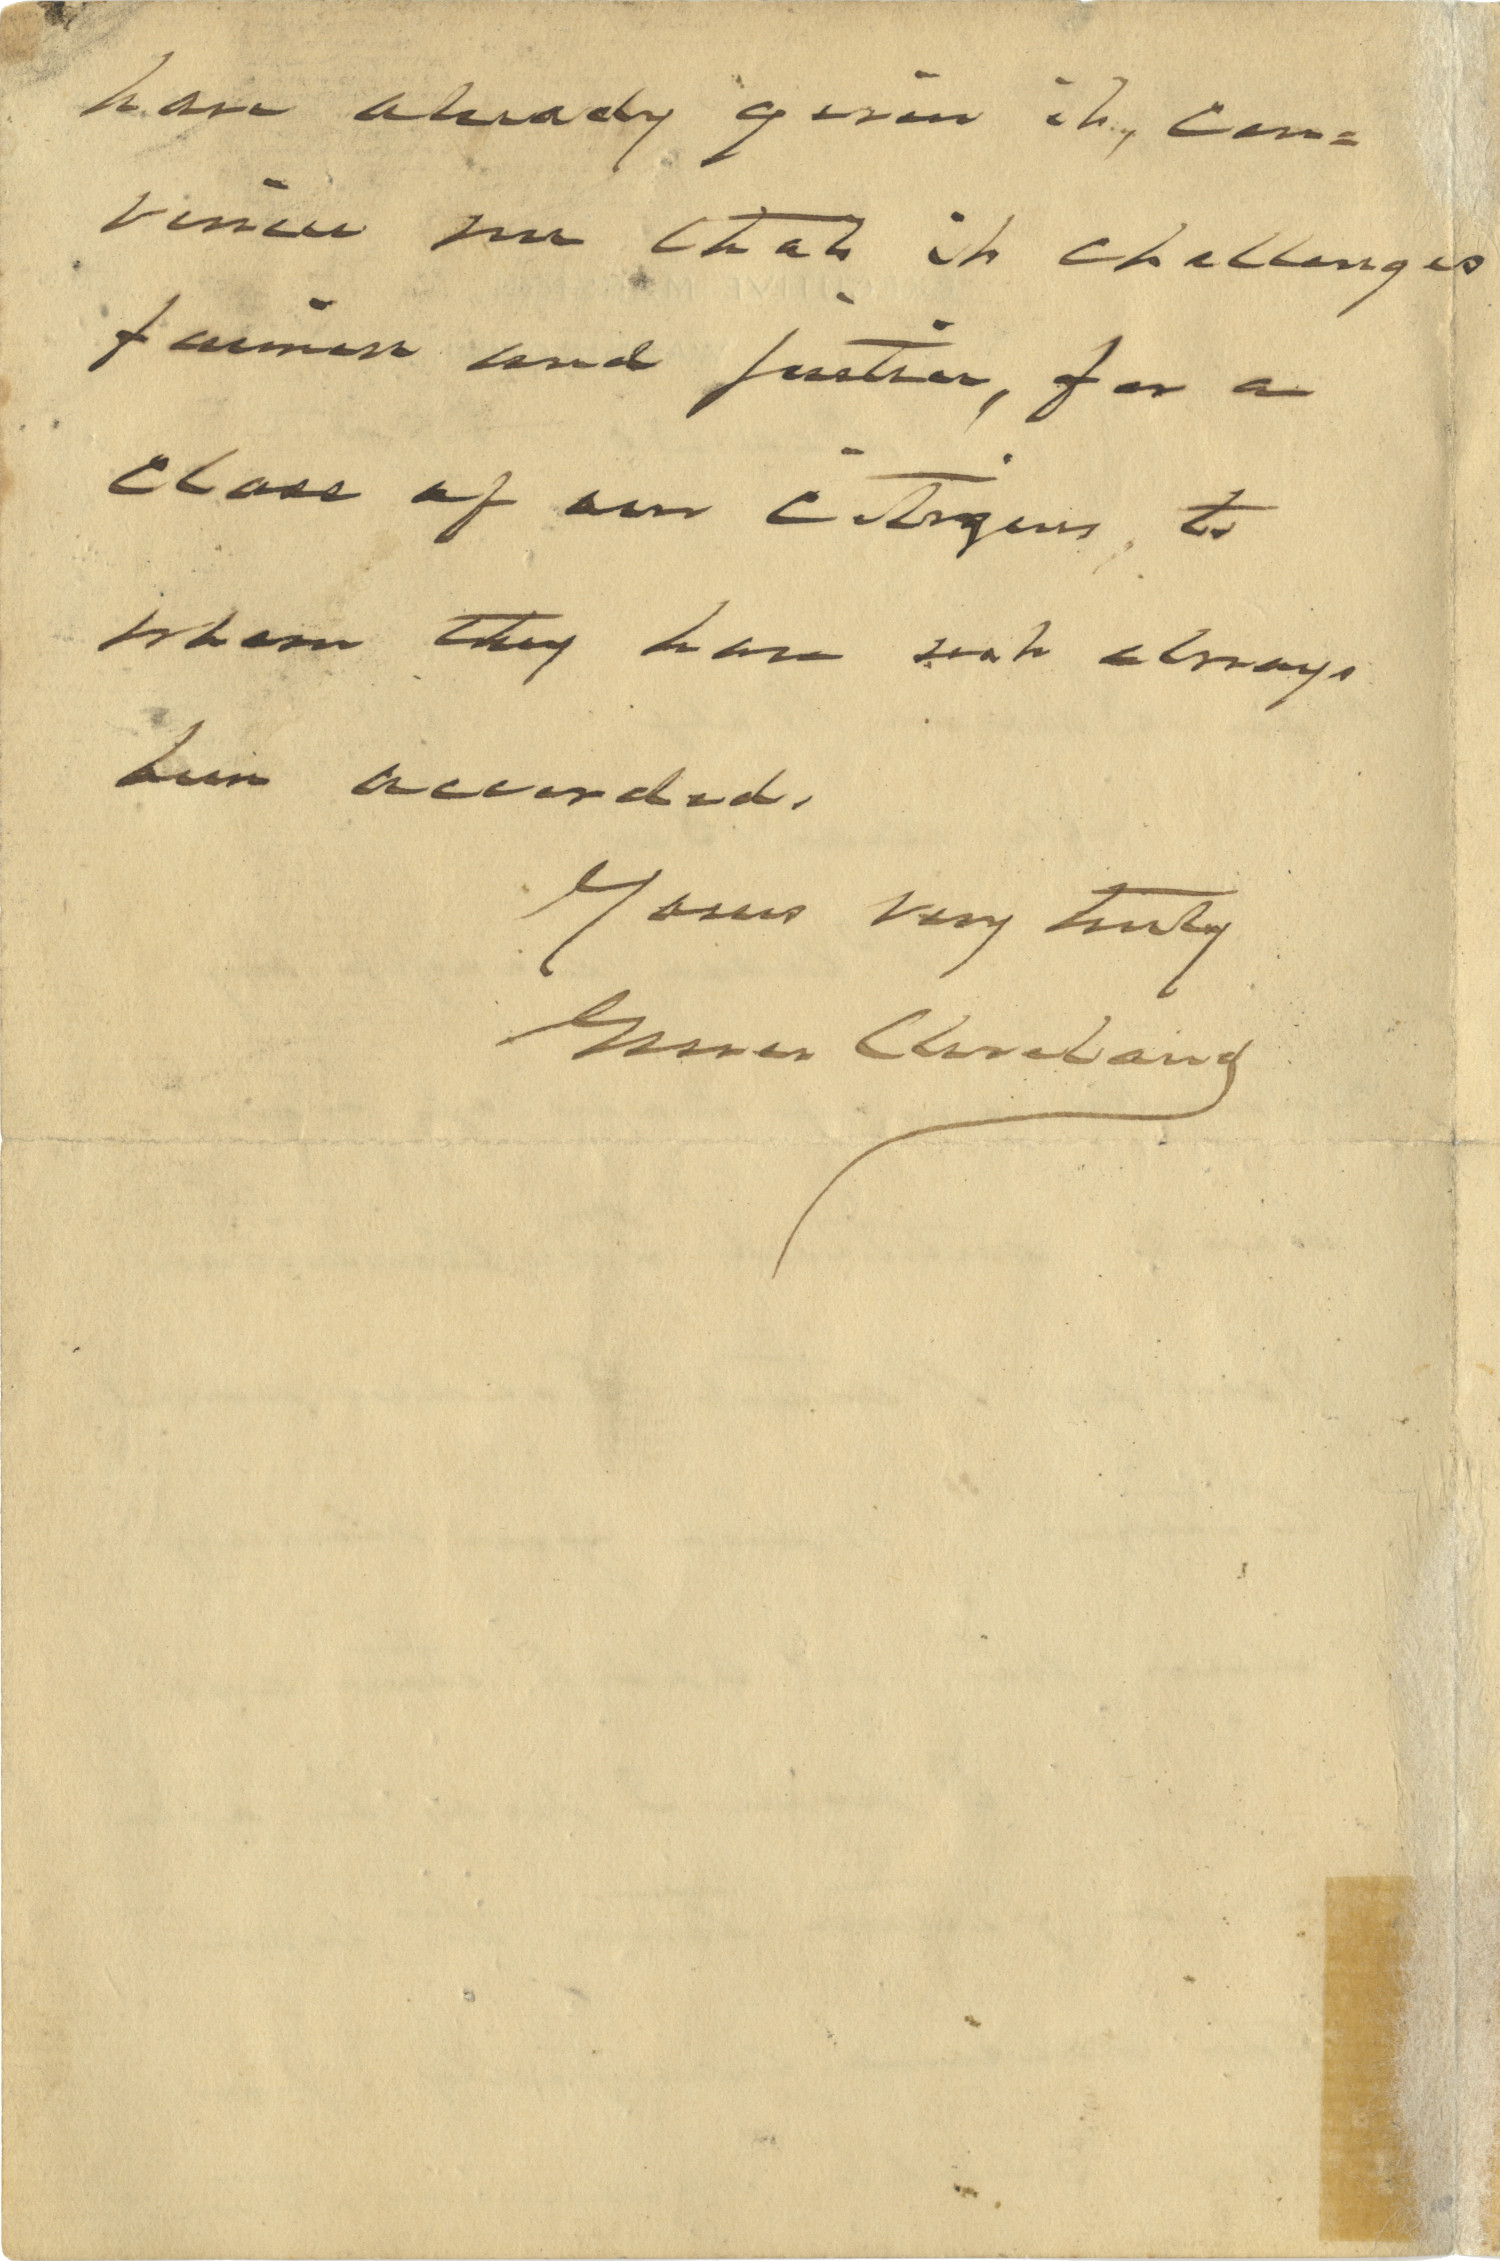 have already given it, con=
vinces me that it challenges
fairness and justice, for a
class of our citizens, to
whom they have not always
been accorded.
Yours very truly
Grover Cleveland